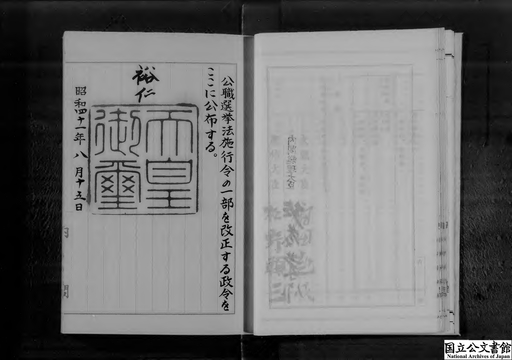 公職選挙法施行令の一部を改正する政令を
ここに公布する。
裕仁
天皇
御璽
昭和四十一年八月十五日
国立公文書館
National Archives of Japan